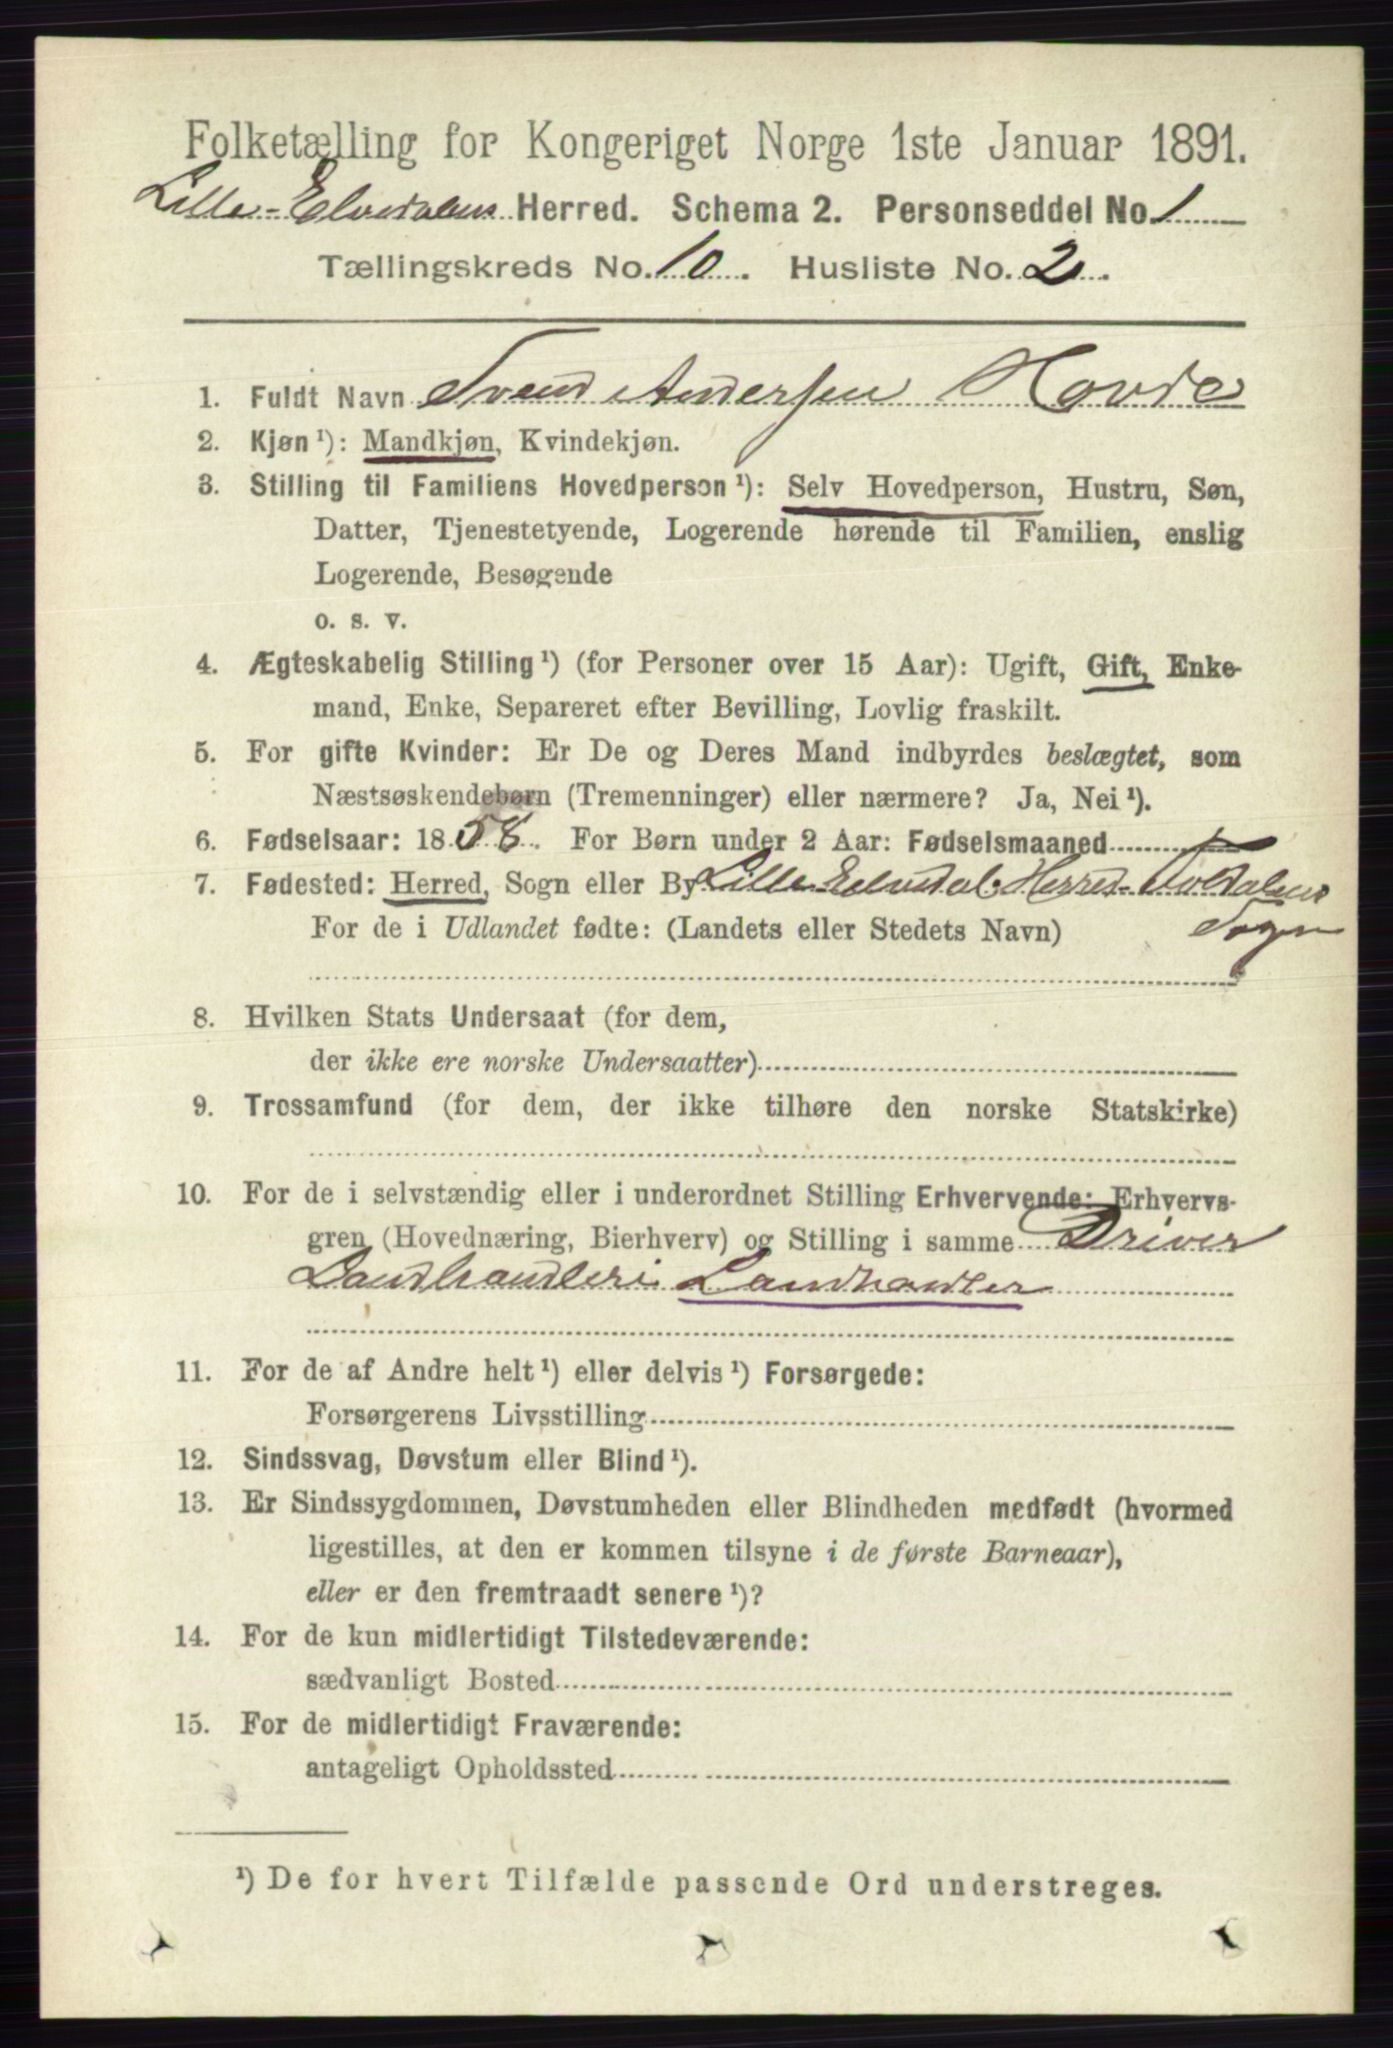 Folketælling for Kongeriget Norge 1ste Januar 1891.
Lille-Elvedalens Herred. Schema 2. Personseddel No. 1
Tællingskreds No. 10. Husliste No. 2.
1. Fuldt Navn Svend Andersen Hovde
2. Kjøn ¹): Mandkjøn, Kvindekjøn.
3. Stilling til Familiens Hovedperson ¹): Selv Hovedperson, Hustru, Søn,
Datter, Tjenestetyende, Logerende hørende til Familien, enslig
Logerende, Besøgende
o. s. v.
4. Ægteskabelig Stilling ¹) (for Personer over 15 Aar): Ugift, Gift, Enke-
mand, Enke, Separeret efter Bevilling, Lovlig fraskilt.
5. For gifte Kvinder: Er De og Deres Mand indbyrdes beslægtet, som
Næstsøskendebørn (Tremenninger) eller nærmere? Ja, Nei ¹).
6. Fødselsaar: 1858. For Børn under 2 Aar: Fødselsmaaned
7. Fødested: Herred, Sogn eller By Lille Elvedal. Herred
For de i Udlandet fødte: (Landets eller Stedets Navn) Sogn
8. Hvilken Stats Undersaat (for dem,
der ikke ere norske Undersaatter)
9. Trossamfund (for dem, der ikke tilhøre den norske Statskirke)
10. For de i selvstændig eller i underordnet Stilling Erhvervende: Erhvervs-
gren (Hovednæring, Bierhverv) og Stilling i samme Driver
Landhandleri Landhandler
11. For de af Andre helt ¹) eller delvis ¹) Forsørgede:
Forsørgerens Livsstilling
12. Sindssvag, Døvstum eller Blind ¹).
13. Er Sindssygdommen, Døvstumheden eller Blindheden medfødt (hvormed
ligestilles, at den er kommen tilsyne i de første Barneaar),
eller er den fremtraadt senere ¹)?
14. For de kun midlertidigt Tilstedeværende:
sædvanligt Bosted
15. For de midlertidigt Fraværende:
antageligt Opholdssted
¹) De for hvert Tilfælde passende Ord understreges.